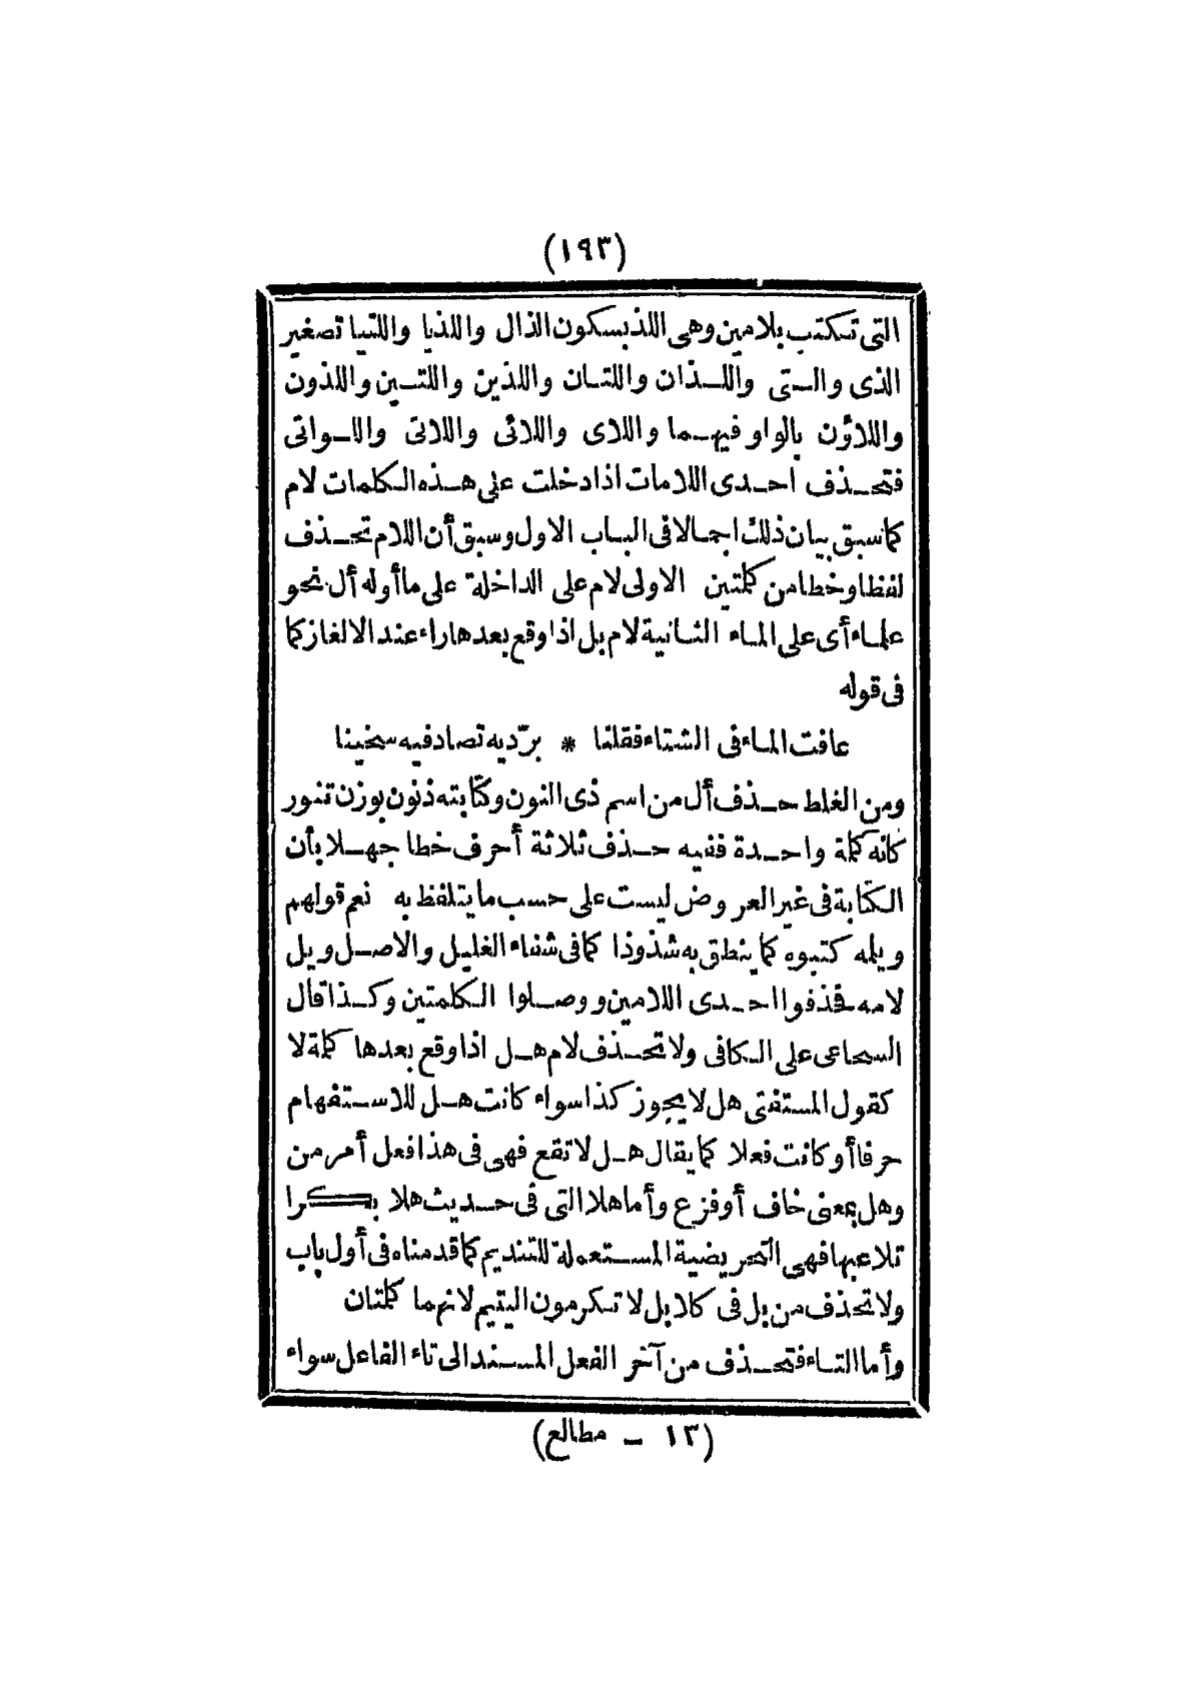 (١٩٣)
التى تكتب بلامين وهى اللذ بسكون الذال واللذيا واللتيا تصغير
الذى والتى واللذان واللتان واللذين واللتين واللذون
واللاؤن بالواو فيهما واللاى واللائى واللاتى واللواتى
فتحذف احدى اللامات اذا دخلت على هذه الكلمات لام
كما سبق بيان ذلك اجمالا فى الباب الاول وسبق أن اللام تحذف
لفظا وخطا من كلمتين الاولى لام على الداخلة على ما أوله أل نحو
علماء أى على الماء الثانية لام بل اذا وقع بعدها راء عند الالغاز كما
فى قوله
عافت الماء فى الشتاء فقلنا * برّديه تصادفيه سخينا
ومن الغلط حذف أل من اسم ذى النون وكتابته ذنون بوزن تنور
كانه كلمة واحدة ففيه حذف ثلاثة أحرف خطا جهلا بأن
الكتابة فى غير العروض ليست على حسب ما يتلفظ به نعم قولهم
ويلمه كتبوه كما ينطق به شذوذا كما فى شفاء الغليل والاصل ويل
لامه فحذفوا احدى اللامين ووصلوا الكلمتين وكذا قال
السجاعى على الكافى ولا تحذف لام هل اذا وقع بعدها كلمة لا
كقول المستفتى هل لا يجوز كذا سواء كانت هل للاستفهام
حرفا أو كانت فعلا كما يقال هل لا تقع فهى فى هذا فعل أمر من
وهل بمعنى خاف أو فزع وأما هلا التى فى حديث هلا بكرا
تلاعبها فهى التحريضية المستعملة للتنديم كما قدمناه فى أول باب
ولا تحذف من بل فى كلا بل لا تكرمون اليتيم لانهما كلمتان
وأما التاء فتحذف من آخر الفعل المسند الى تاء الفاعل سواء
(١٣ - مطالع)